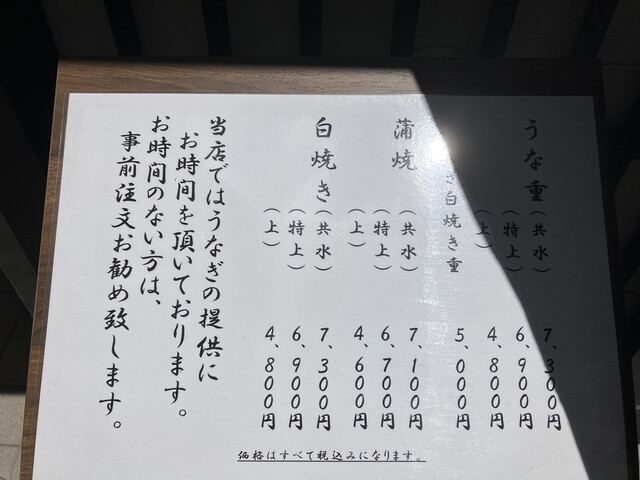 うな重(共水) 7、300円
(特上) 6、900円
(上) 4、800円
ぎ白焼き重 5、000円
蒲焼(共水) 7、100円
(特上) 6、700円
(上) 4、600円
白焼き(共水) 7、300円
(特上) 6、900円
(上) 4、800円
当店ではうなぎの提供に
お時間を頂いております。
お時間のない方は、
事前注文お勧め致します。
価格はすべて税込みになります。